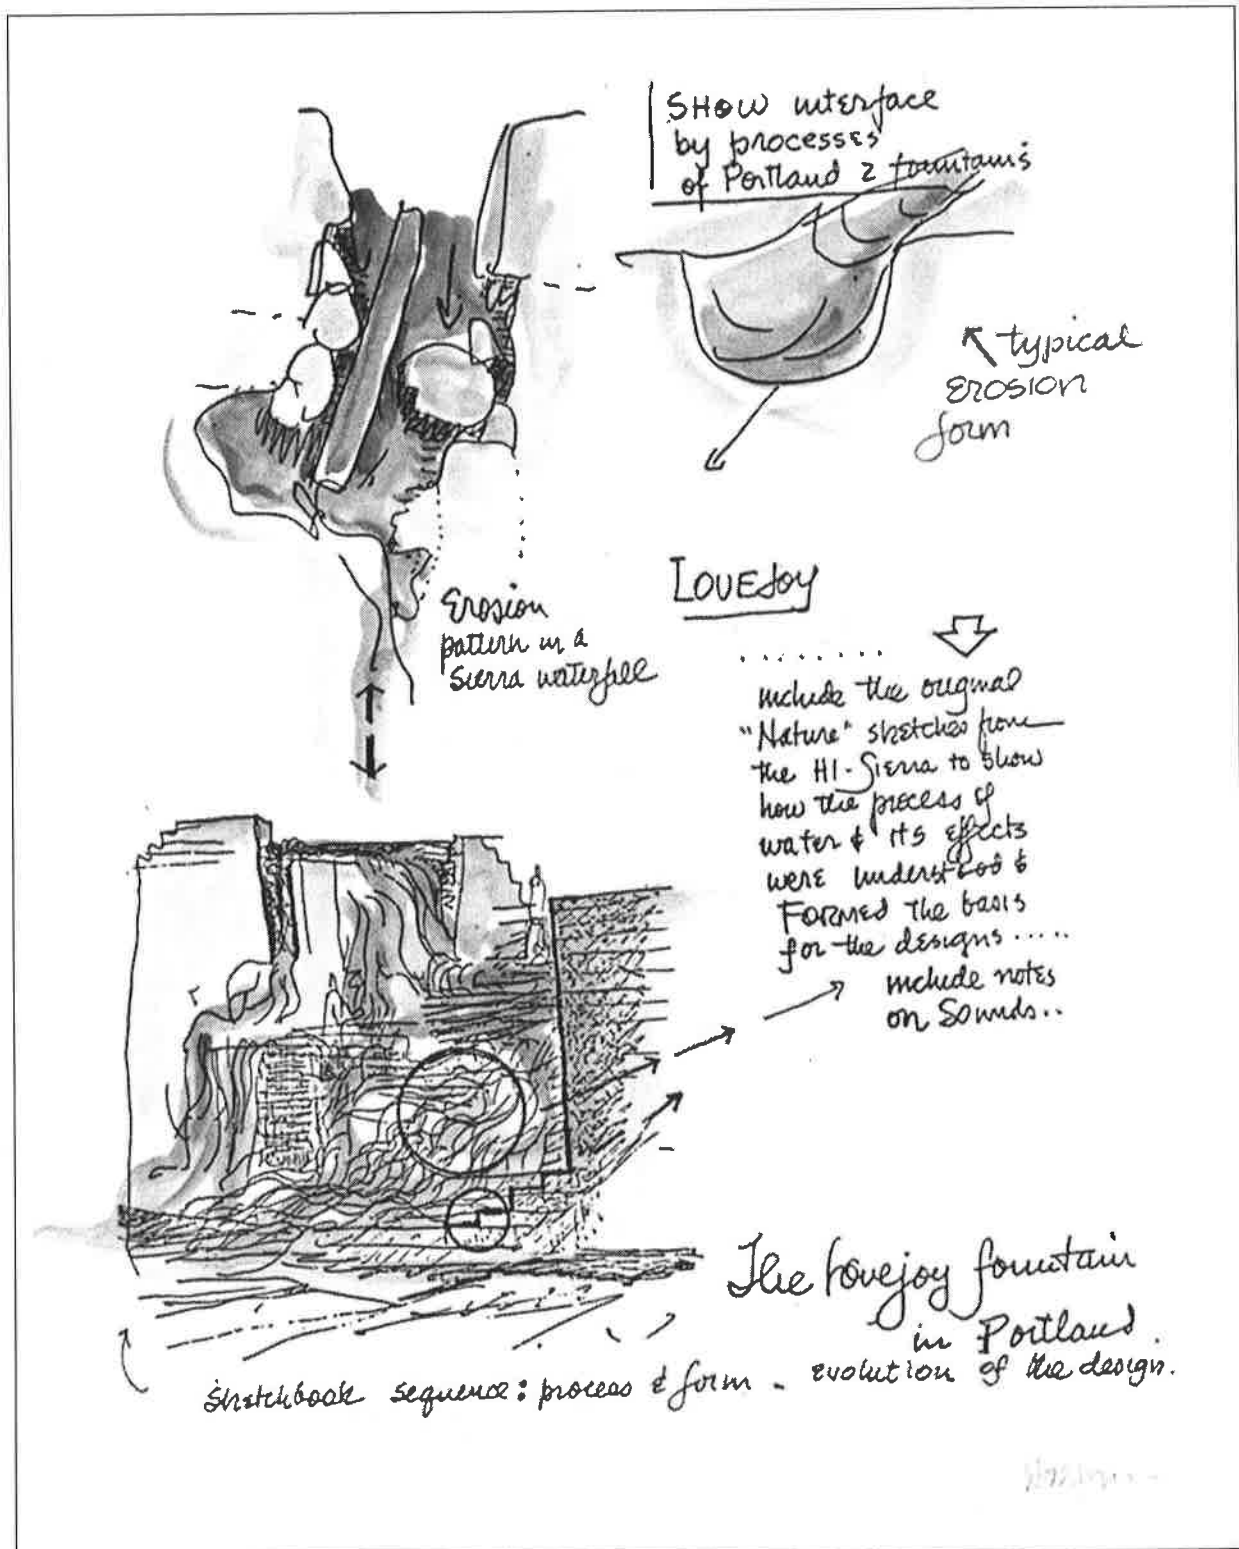 SHOW interface
by processes
of Portland 2 fountains
typical
EROSION
form
Erosion
pattern in a
Sierra waterfall
LOVEJOY
include the original
"Nature" sketches from
the HI-Sierra to show
how the process of
water & ITS effects
were understood &
FORMED the basis
for the designs .....
include notes
on Sounds..
The Lovejoy fountain
in Portland.
sketchbook sequence: process & form - evolution of the design.